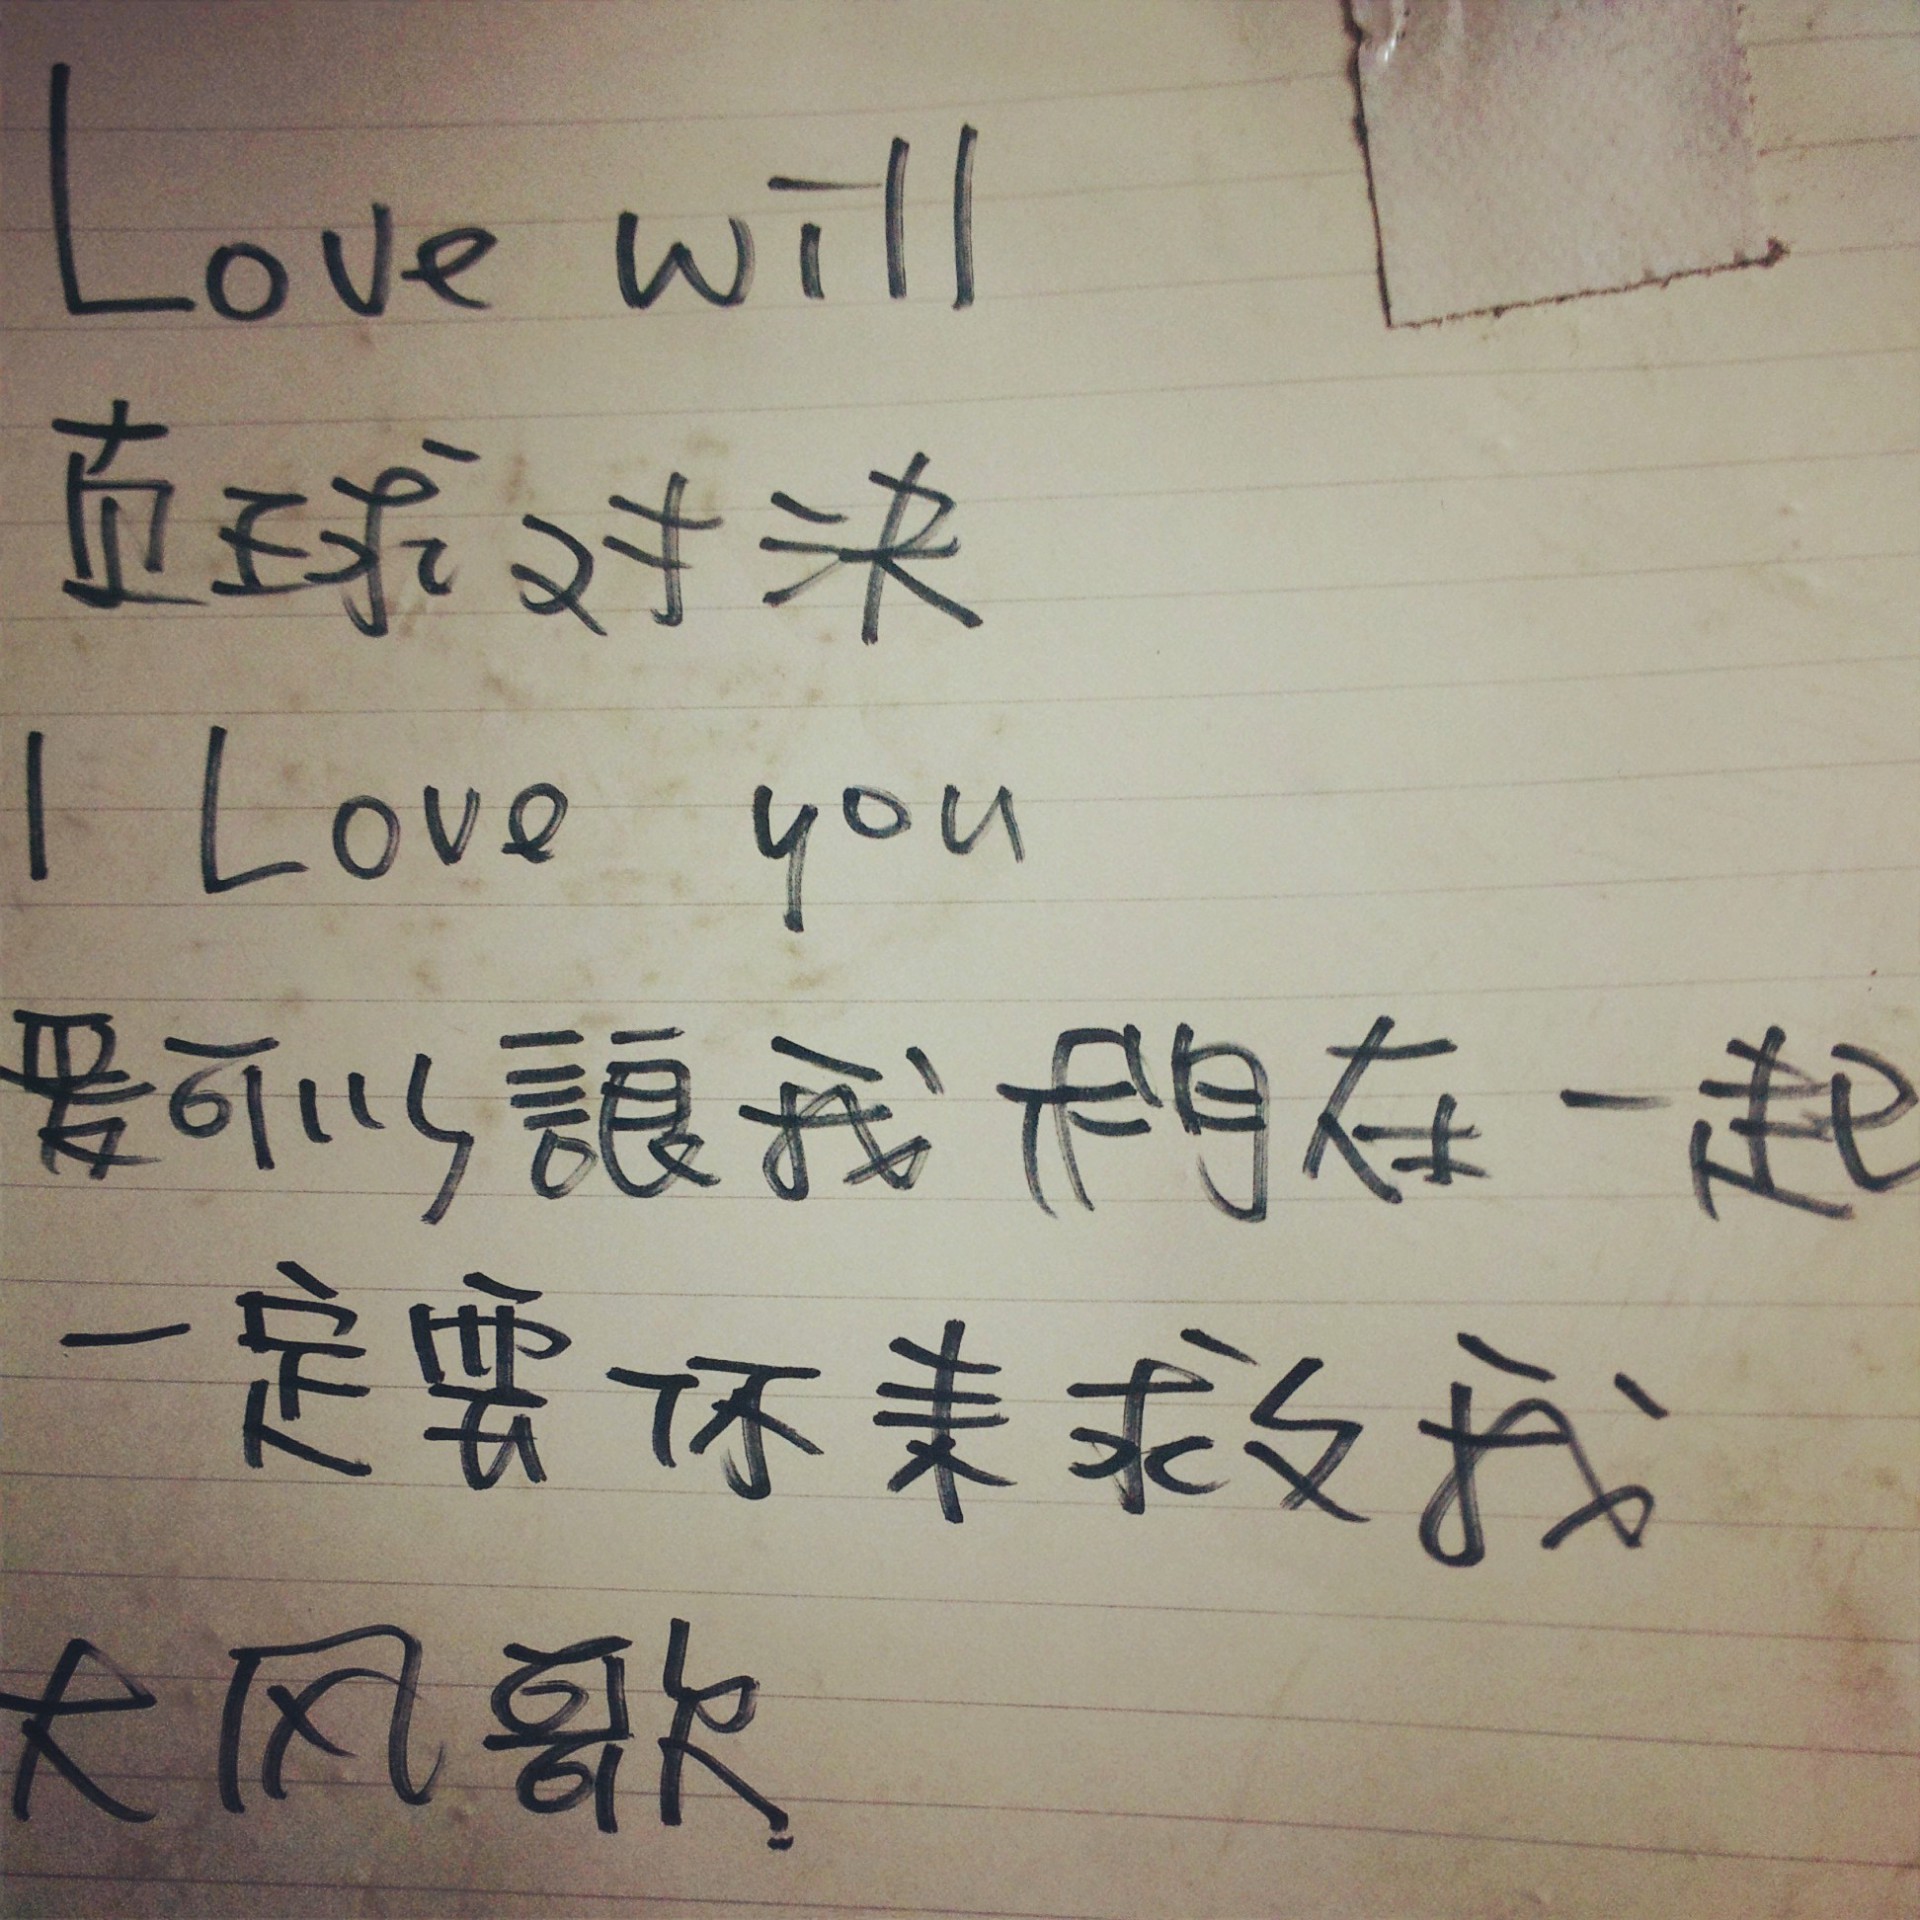 Love will
直球对決
I Love you
爱可以讓我們在一起
一定要你来救我
大风歌